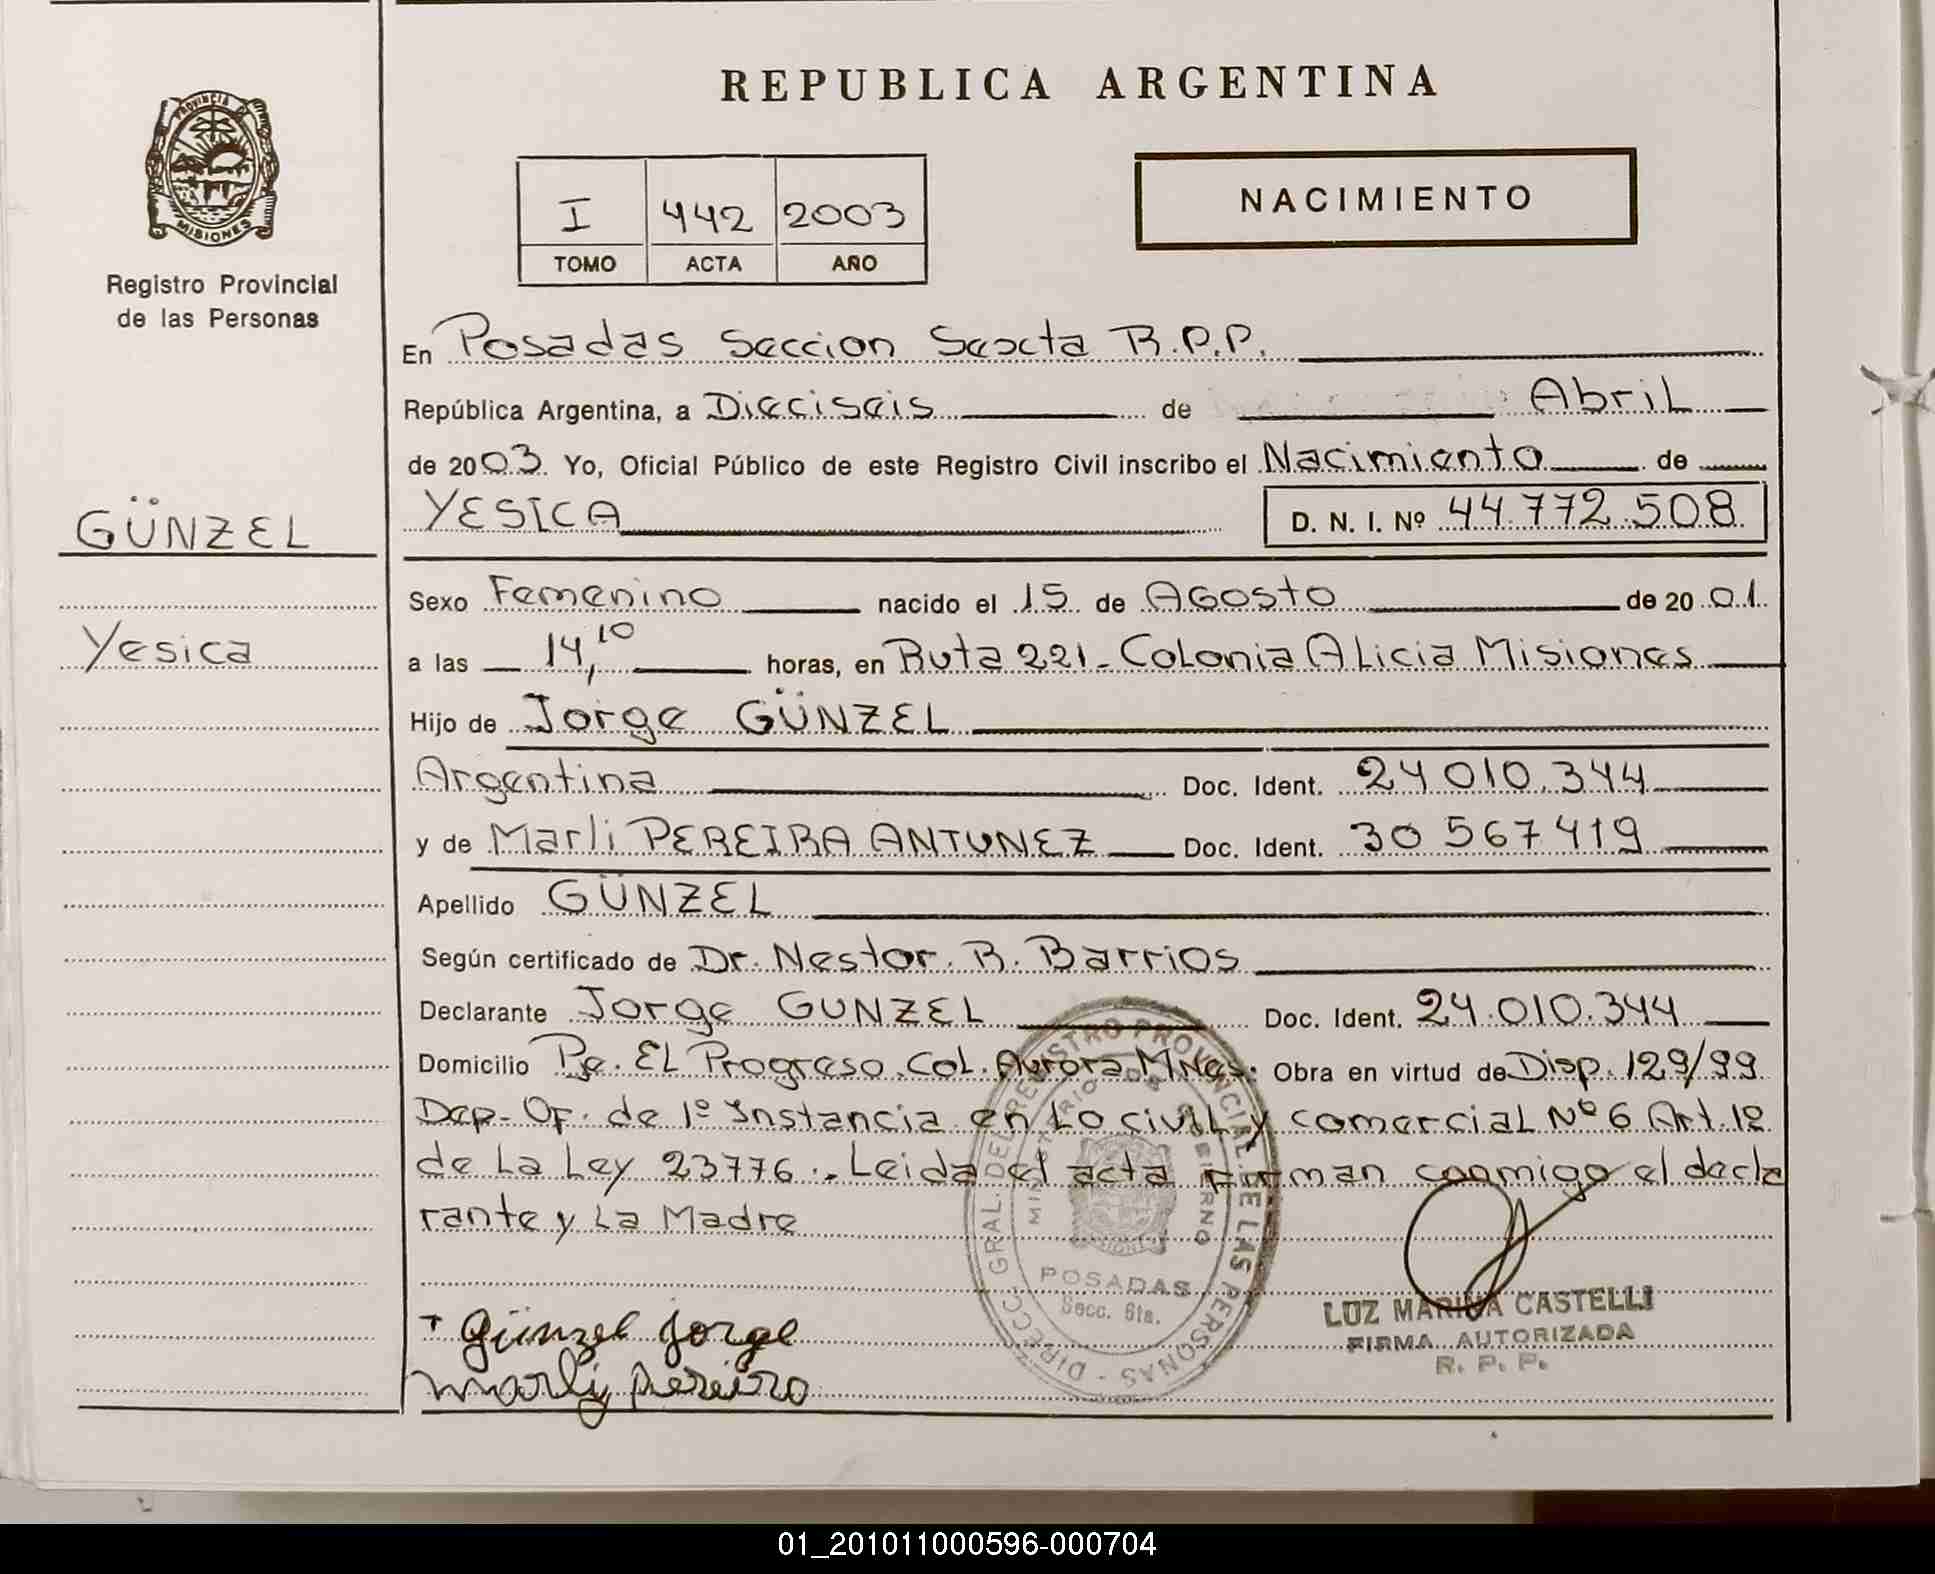 REPUBLICA ARGENTINA
PROVINCIA DE
MISIONES
Registro Provincial
de las Personas
I 442 2003
TOMO ACTA AÑO
NACIMIENTO
En Posadas Seccion Sexta R.P.P.
República Argentina, a Dieciseis de Abril
de 2003. Yo, Oficial Público de este Registro Civil inscribo el Nacimiento de
GÜNZEL
YESICA D. N. I. Nº 44.772.508
Sexo Femenino nacido el 15 de AGOSTO de 20 01
Yesica
a las 14,10 horas, en Ruta 221 - Colonia Alicia Misiones
Hijo de Jorge GÜNZEL
Argentina Doc. Ident. 24 010.344
y de Marli PEREIRA ANTUNEZ Doc. Ident. 30 567 419
Apellido GÜNZEL
Según certificado de Dr. Nestor. R. Barrios
Declarante Jorge GUNZEL Doc. Ident. 24.010.344
Domicilio Pje. EL Progreso. Col. Aurora Mnes. Obra en virtud de Disp. 129/99
Dep-Of. de 1º Instancia en Lo civil y comercial Nº 6 Art. 1º
de La Ley 23776.- Leida el acta firman conmigo el decla
rante y La Madre
DIRECC. GRAL. DEL REGISTRO PROVINCIAL DE LAS PERSONAS
MINISTERIO DE GOBIERNO
POSADAS
Secc. 6ta.
LUZ MARINA CASTELLI
FIRMA AUTORIZADA
R. P. P.
+ Günzel Jorge
Marli Pereira
01_201011000596-000704